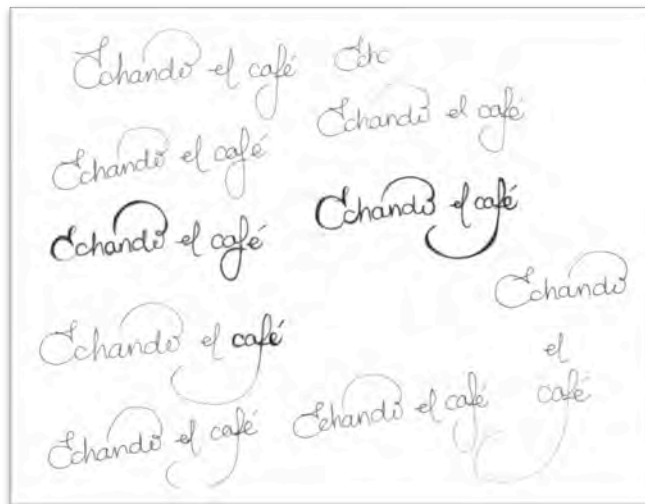 Echando el café
Echo
Echando el café
Echando el café
Echando el café
Echando el café
Echando
el
café
Echando el café
Echando el café
Echando el café